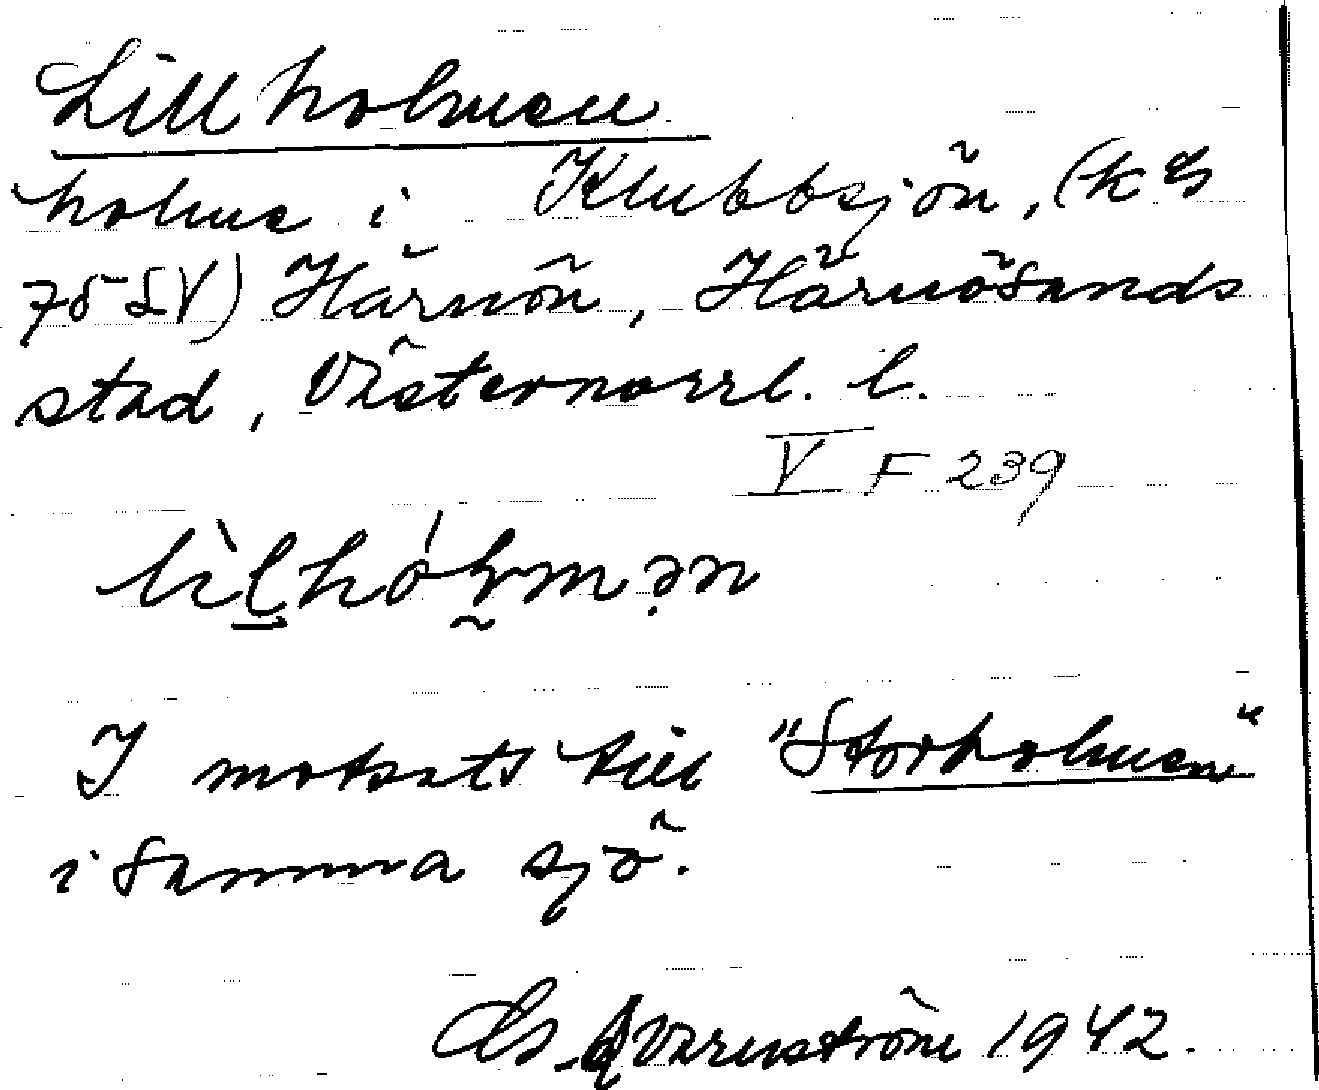 Lillholmen
holme i Klubbsjön, (k G
75 SV) Härnön, Härnösands
stad, Västernorrl. l.
V F 239
lìlhólmən
I motsats till "Storholmen"
i samma sjö.
Qvarnström 1942.